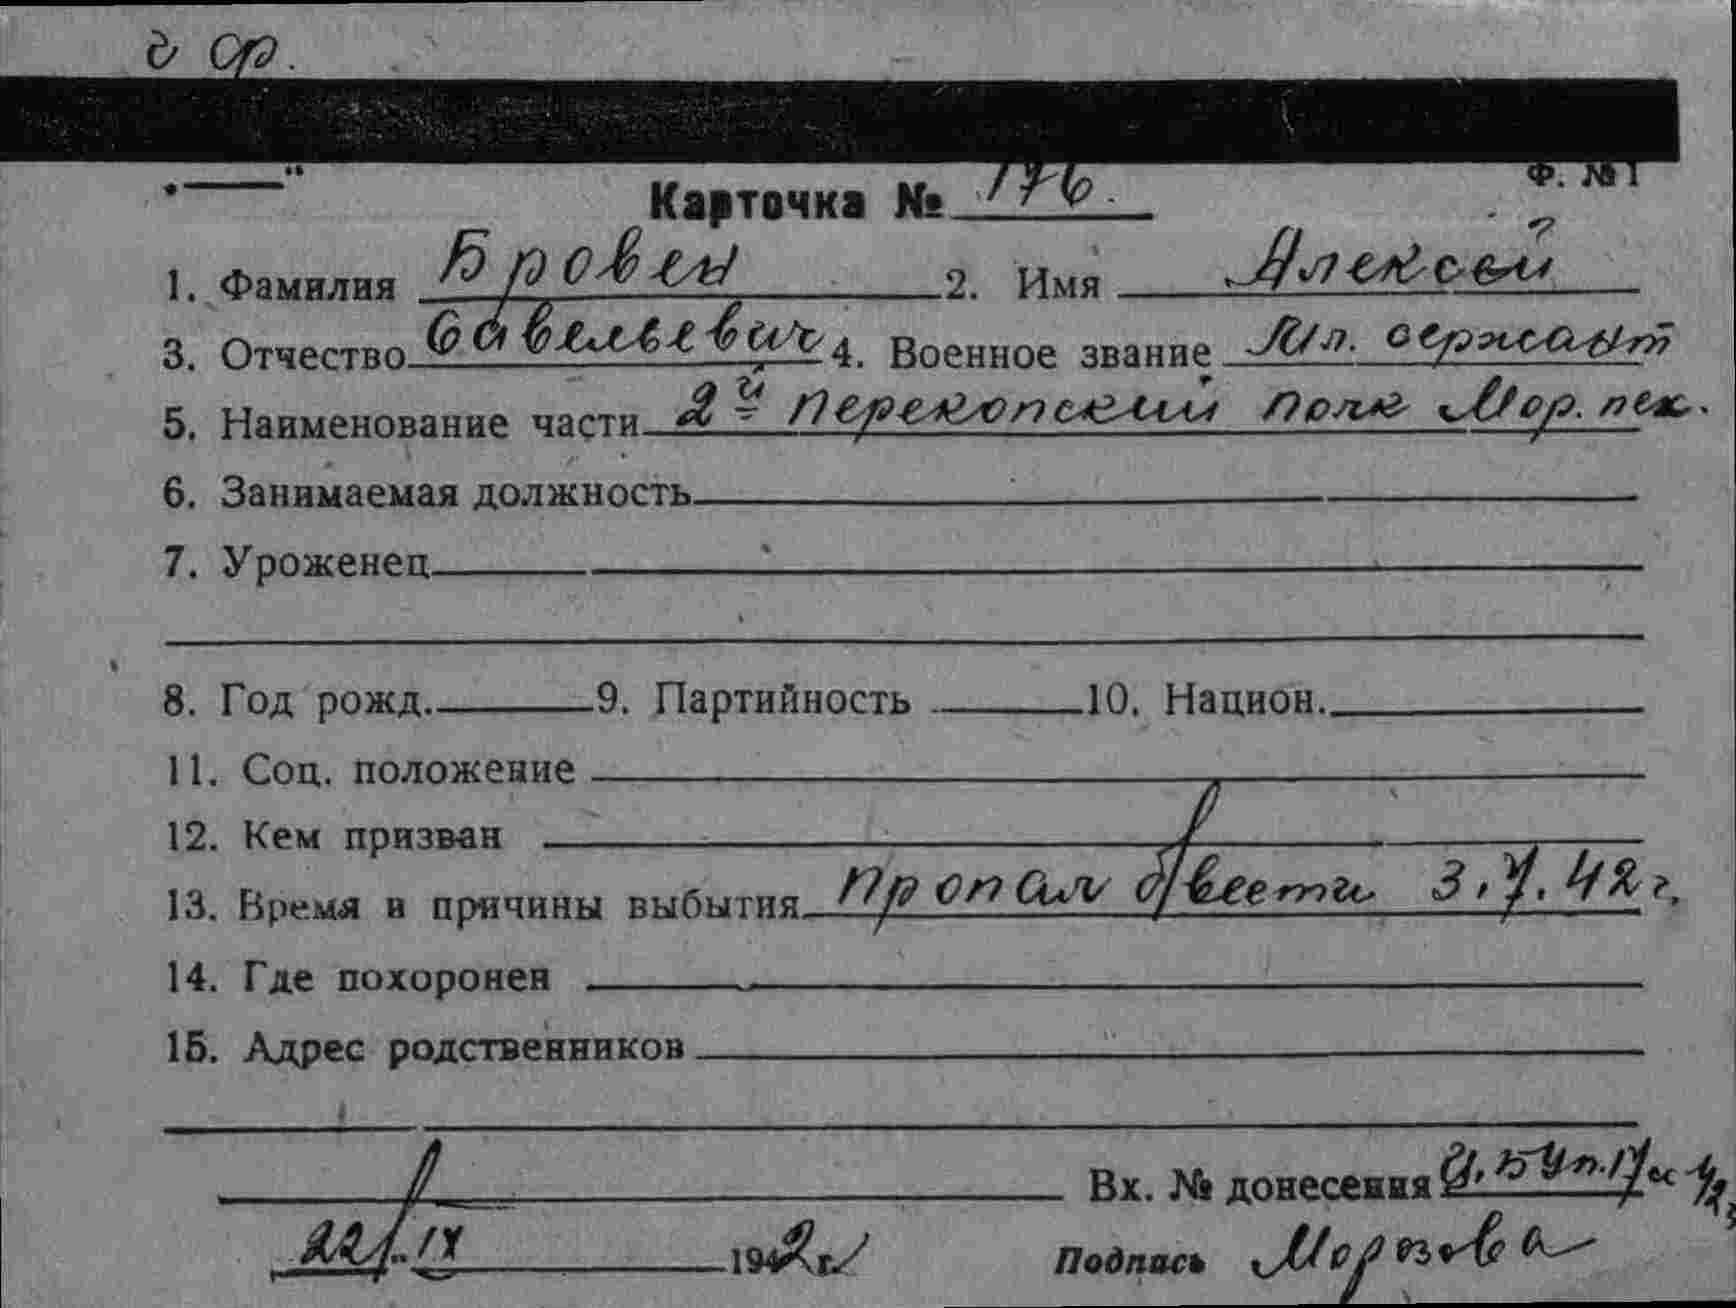 Ф. № 1
Карточка № 176.
1. Фамилия Бровен 2. Имя Алексей
3. Отчество Савельевич 4. Военное звание Мл. сержант
5. Наименование части 2й Перекопский Полк Мор. пех.
6. Занимаемая должность
7. Уроженец
8. Год рожд. 9. Партийность 10. Национ.
11. Соц. положение
12. Кем призван
13. Время и причины выбытия Пропал б/вести 3.7.42 г.
14. Где похоронен
15. Адрес родственников
Вх. № донесения
22/IX 1942 г.
Подпись Морозова